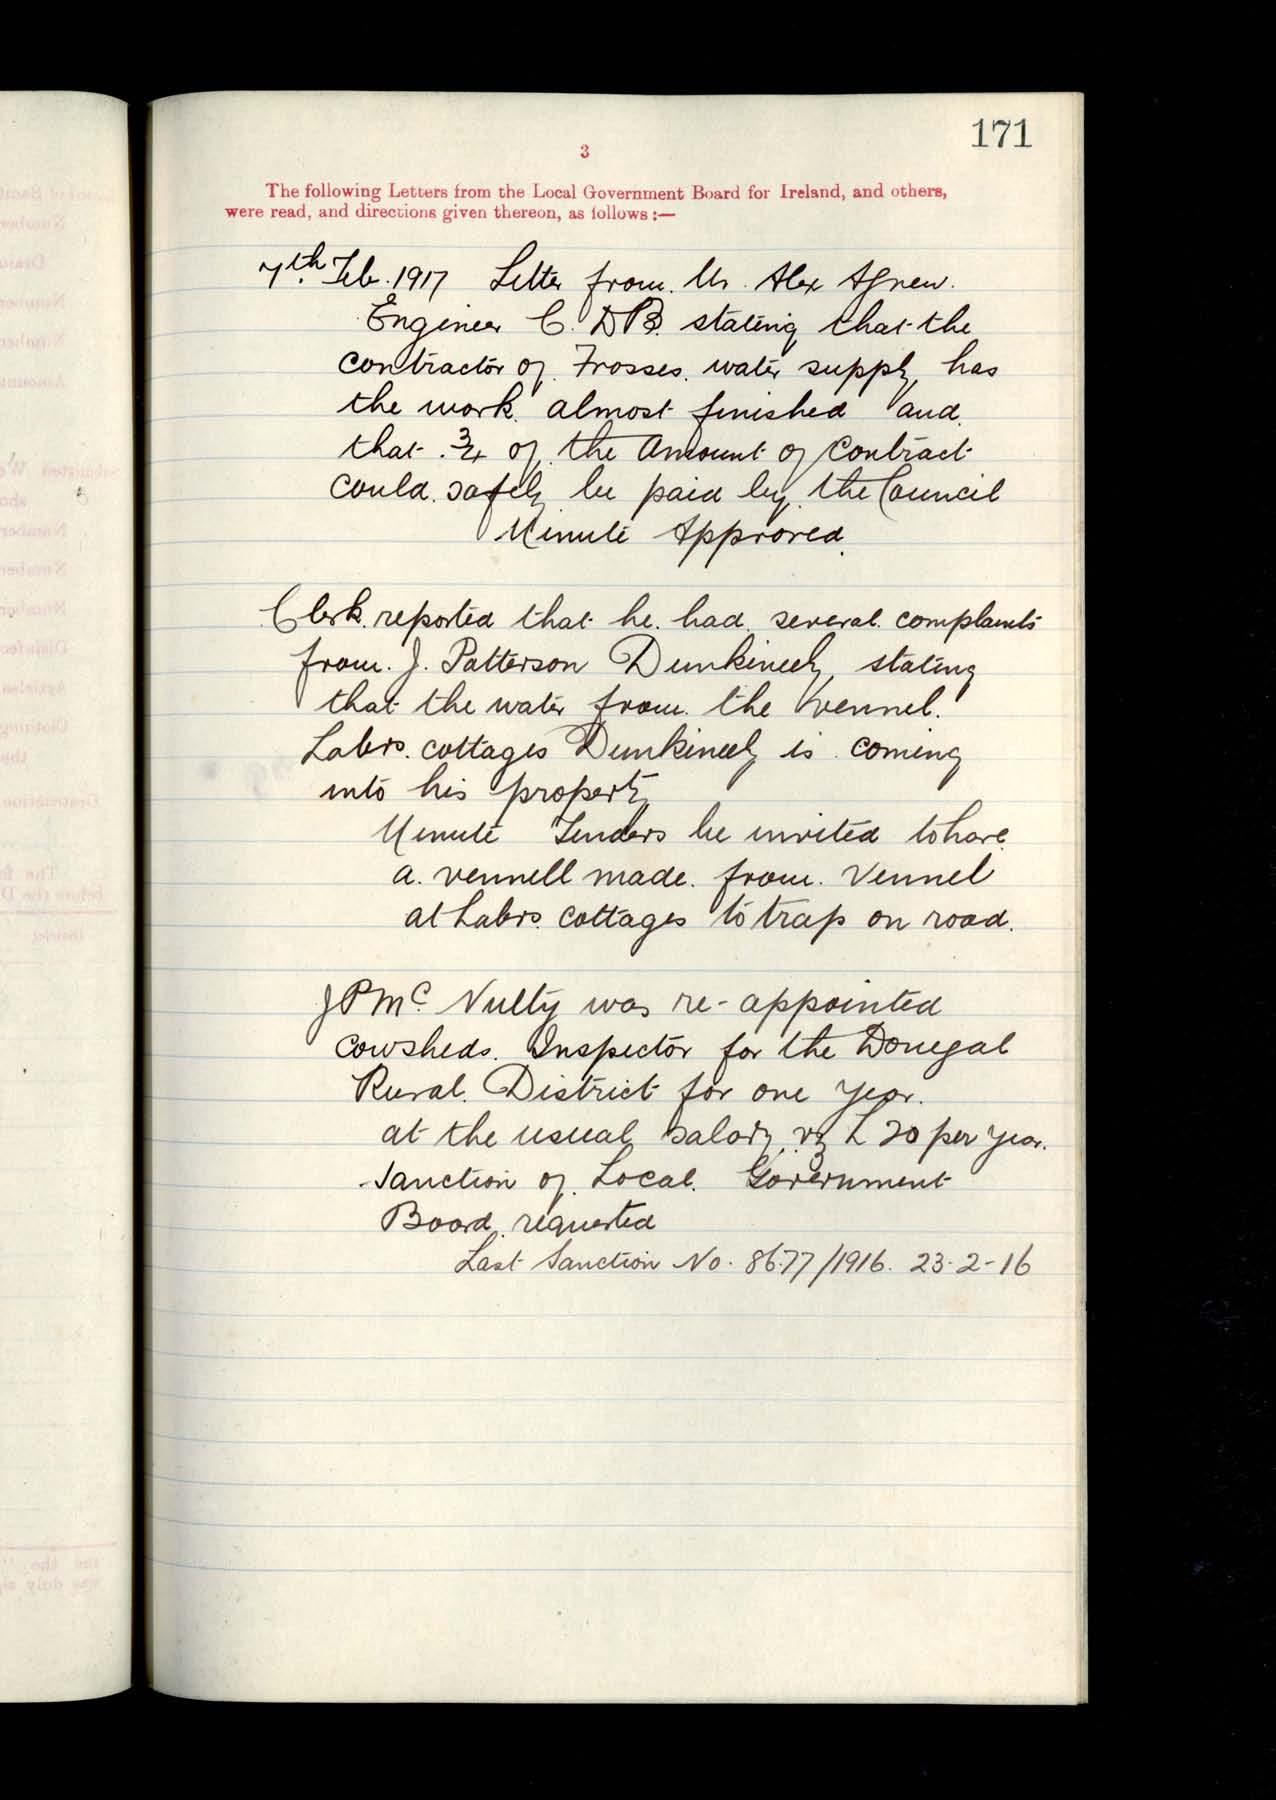 171
3
The following Letters from the Local Government Board for Ireland, and others,
were read, and directions given thereon, as follows :—
7th. Feb. 1917 Letter from Mr. Alex Agnew.
Engineer C. D B. stating that the
contractor of Frosses water supply has
the work almost finished and
that 3/4 of the amount of contract
could safely be paid by the Council
Minute Approved.
Clerk reported that he had several complaints
from J. Patterson Dunkineely stating
that the water from the vennel.
Labrs. cottages Dunkineely is coming
into his property
Minute Tenders be invited to have
a vennell made from Vennel
at Labrs. cottages to trap on road.
J P Mc Nulty was re-appointed
cowsheds Inspector for the Donegal
Rural District for one year.
at the usual salary, viz £ 20 per year.
Sanction of Local Government
Board requested
Last Sanction No. 8677/1916. 23-2-16